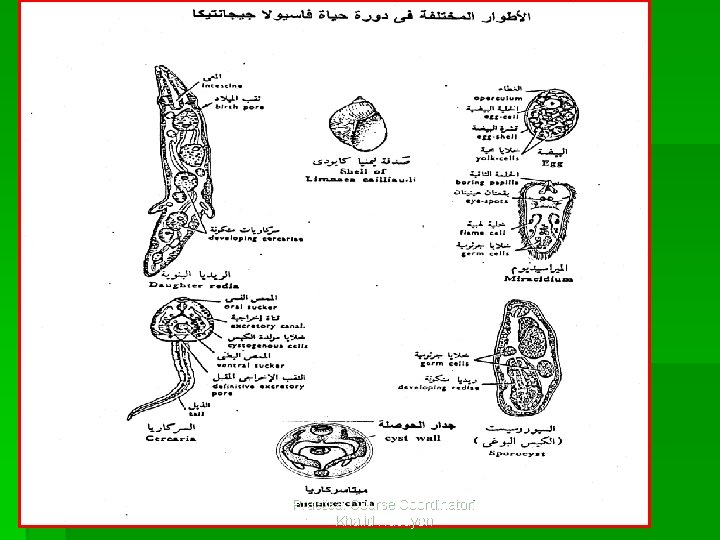 الأطوار المختلفة فى دورة حياة فاسيولا جيجانتيكا
المعى
intestine
ثقب الميلاد
birth pore
سركاريات متكونة
developing cercariae
الريديا البنوية
Daughter redia
صدفة ليمنيا كايودى
Shell of
Limnaea cailliaudi
الغطاء
operculum
الخلية البيضية
egg-cell
قشرة البيضة
egg-shell
خلايا محية
yolk-cells
البيضة
Egg
الحلمة الثاقبة
boring papilla
بقعتان عينيتان
eye-spots
خلية لهبية
flame cell
خلايا جرثومية
germ cells
الميراسيديوم
Miracidium
الممص الفمى
oral sucker
قناة إخراجية
excretory canal.
خلايا مولدة الكيس
cystogenous cells
الممص البطنى
ventral sucker
الثقب الإخراجى المقبل
definitive excretory
pore
الذيل
tail
السركاريا
Cercaria
خلايا جرثومية
germ cells
ريديا متكونة
developing rediae
السبوروسيست
(الكيس البوغى)
Sporocyst
جدار الحوصلة
cyst wall
ميتاسركاريا
metacercaria
Course Coordinator/
Khalid